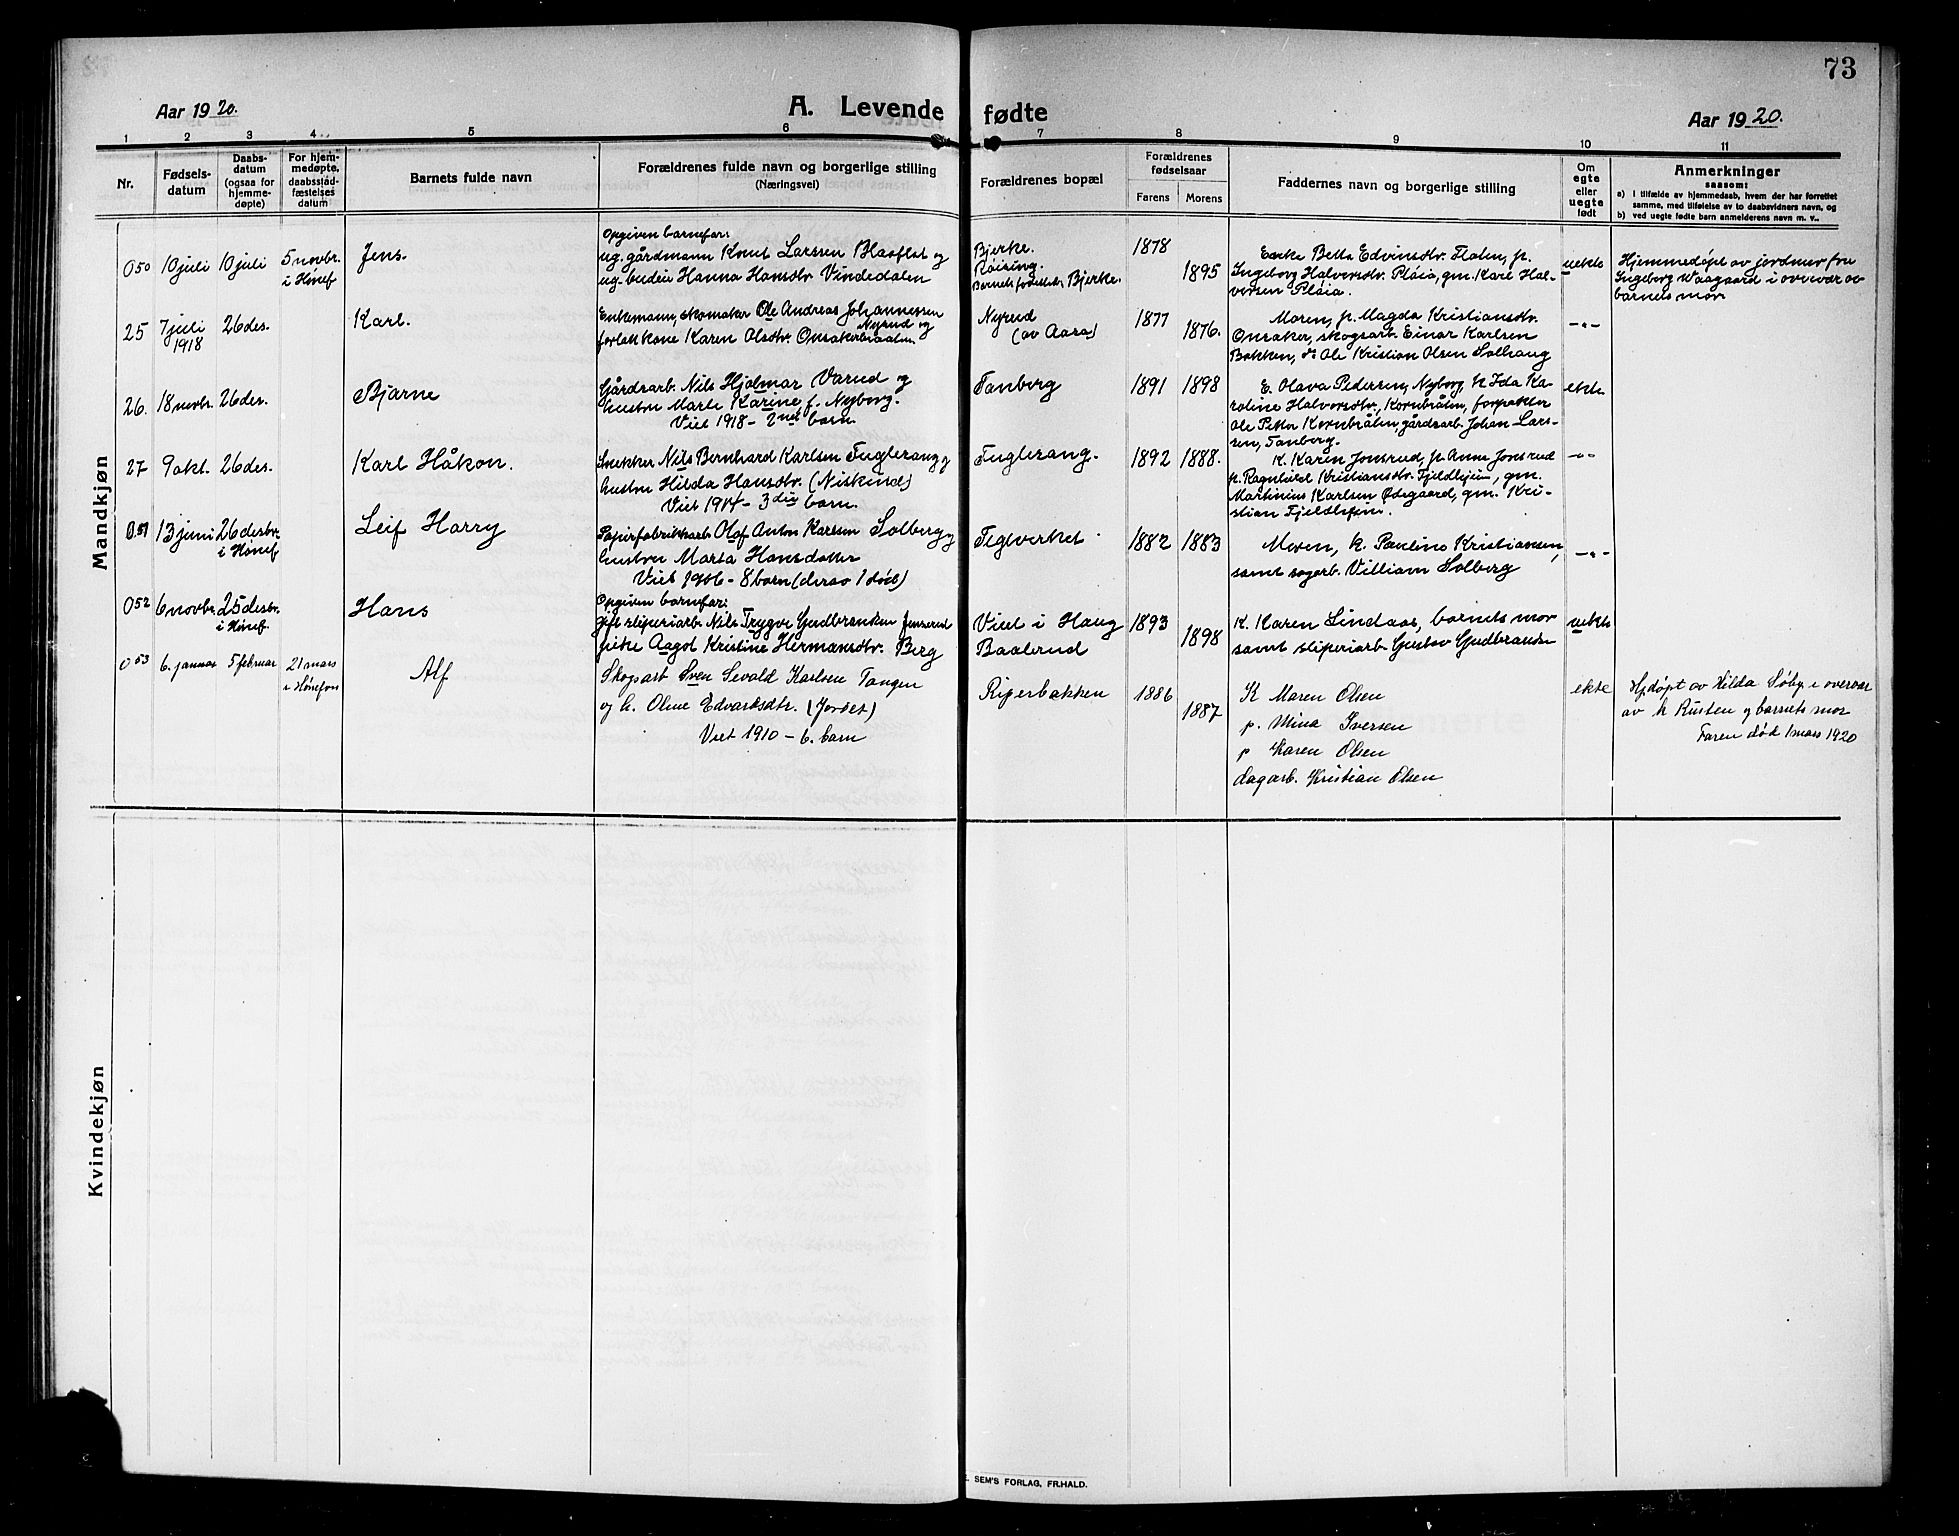 73
Aar 1920.
A. Levende fødte
Aar 1920.
1 2 3 4 5 6 7 8 9 10 11
Nr.
Fødselsdatum
Daabsdatum (ogsaa for hjemmedøpte)
For hjemmedøpte, daabsstadfæstelses datum
Barnets fulde navn
Forældrenes fulde navn og borgerlige stilling
(Næringsvei)
Forældrenes bopæl
Forældrenes fødselsaar
Farens Morens
Faddernes navn og borgerlige stilling
Om egte eller uegte født
Anmerkninger
saasom:
a) I tilfælde av hjemmedaab, hvem der har forrettet
samme, med tilføielse av to daabsvidners navn, og
b) ved uegte fødte barn anmelderens navn m. v..
Mandkjøn
050 10 juli 10 juli 5 novbr. i Hønef. Jens.
Opgiven barnefar:
ug. gårdmann Knut Larssen Haaflat og
ug. budeie Hanna Hansdtr. Vindedalen
Bjerke.
Røising.
Barnets fødested: Bjerke.
1878 1895
Enke Betle Edvinsdtr. Flaten, p.
Ingeborg Halvorsdtr. Pláia, gm. Kare Hal-
vorsen Pláia.
uekte
Hjemmedøpt av jordmor fru
Ingeborg Waagaard i overvær av
barnets mor
25 7 juli 1918 26 des. Karl.
Enkemann, skomaker Ole Andreas Johannessen
Nyrud og
forlatt kone Karen Olsdtr. Onsakerbraaten.
Nyrud
(av Aasa)
1877 1876.
Moren, p. Magda Kristiansdtr.
Onsaker, skogsarb. Einar Karlsen
Bakken, do Ole Kristian Olsen Solhaug
-"-
26. 18 novbr. 26 des. Bjarne
Gårdsarb. Nils Hjalmar Varud og
hustru Marte Karine f. Nyborg.
Viet 1918 - 2net barn.
Tanberg
1891 1898
E. Olava Pedersen, Nyborg, k. Ida Ka-
roline Halvorsdtr., Kornbråten, forpakter
Ole Petter Kornbråten, gårdsarb. Johan Lars-
sen, Tanberg.
ekte.
27 9 okt. 26 des. Karl Håkon.
Snekker Nils Bernhard Karlsen Fuglerang og
hustru Hilda Hansdtr. (Niskind)
Viet 1914 - 3die barn.
Fuglerang.
1892 1888.
K. Karen Jonsrud, p. Anna Jonsrud
p. Ragnhild Kristiansdtr. Fjeldheim, gm.
Martinius Karlsen Ødegaard, gm. Kri-
stian Fjeldheim.
-"-
051 13 juni 26 desbr. i Hønef. Leif Harry
Papirfabrikkarb. Olaf Anton Karlsen Solberg og
hustru Marta Hansdatter
Viet 1906 - 8 barn (derav 1 død)
Teglverket
1882 1883
Moren, k. Pauline Kristiansen,
samt sagarb. Villiam Solberg
-"-
052 6 novbr. 25 desbr. i Hønef. Hans
Opgiven barnefar:
gift sliperiarb. Nils Trygve Gudbrandsen Jensrud
pike Aagot Kristine Hermansdtr. Berg
Viul i Haug
Baalerud
1893 1898
K. Karen Lindaas, barnets mor
samt sliperiarb. Gustav Gudbrandse
uekte
053 6. januar 5 februar 21 mars i Hønefos Alf
Skogsarb Sven Sevald Karlsen Tangen
og h. Oline Edvardsdtr. (Jordet)
Viet 1910 - 6. barn
Riperbakken
1886 1887
K Maren Olsen
p. Mina Iversen
p Karen Olsen
dagarb. Kristian Olsen
ekte
Hjdøpt av Hilda Søby i overvær
av k Rusten og barnets mor
Faren død 1 mars 1920
Kvindekjøn
E. SEM'S FORLAG, FR.HALD.